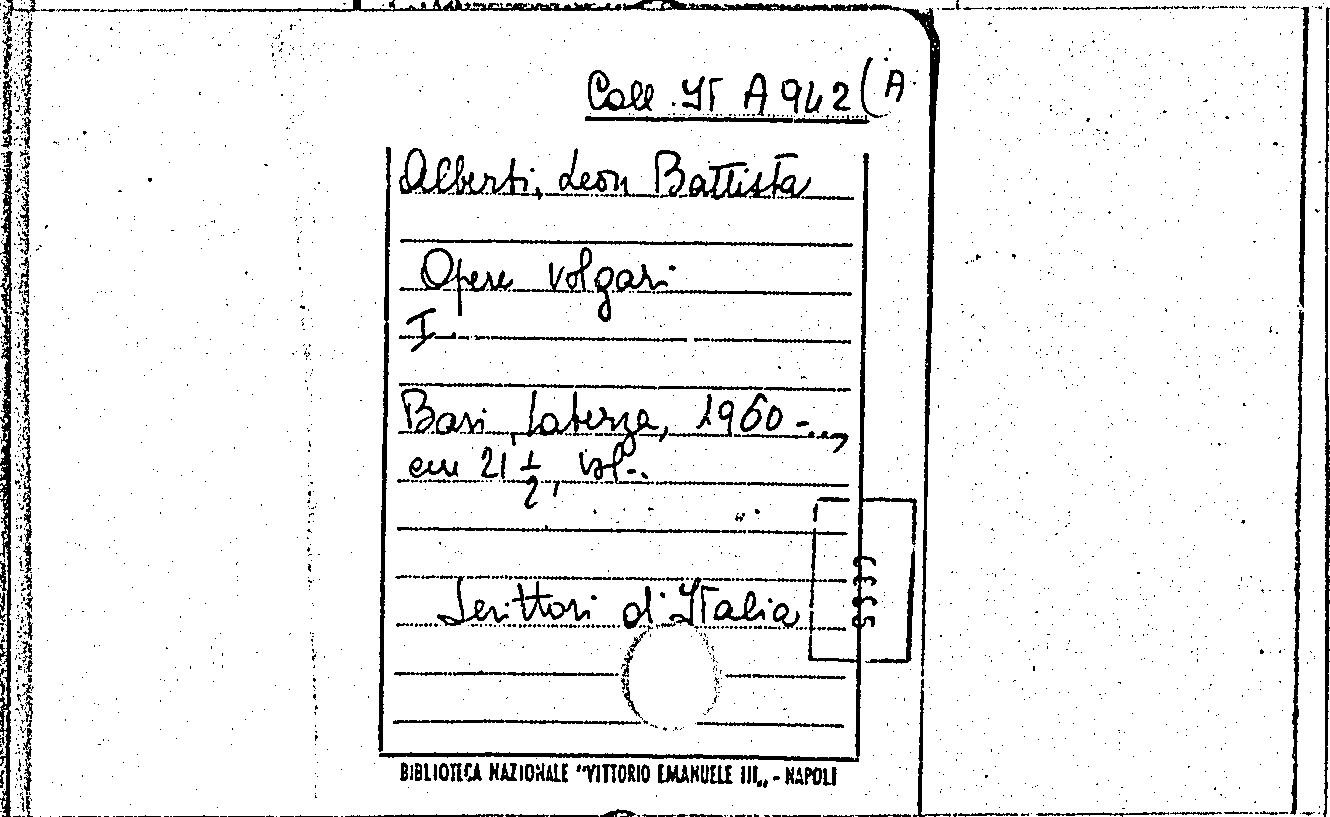 Coll. It A 942 (A
Alberti, Leon Battista
Opere volgari
I
Bari, Laterza, 1960-..,
cm 21 1/2, vol-.
Scrittori d'Italia
BIBLIOTECA NAZIONALE "VITTORIO EMANUELE III" - NAPOLI